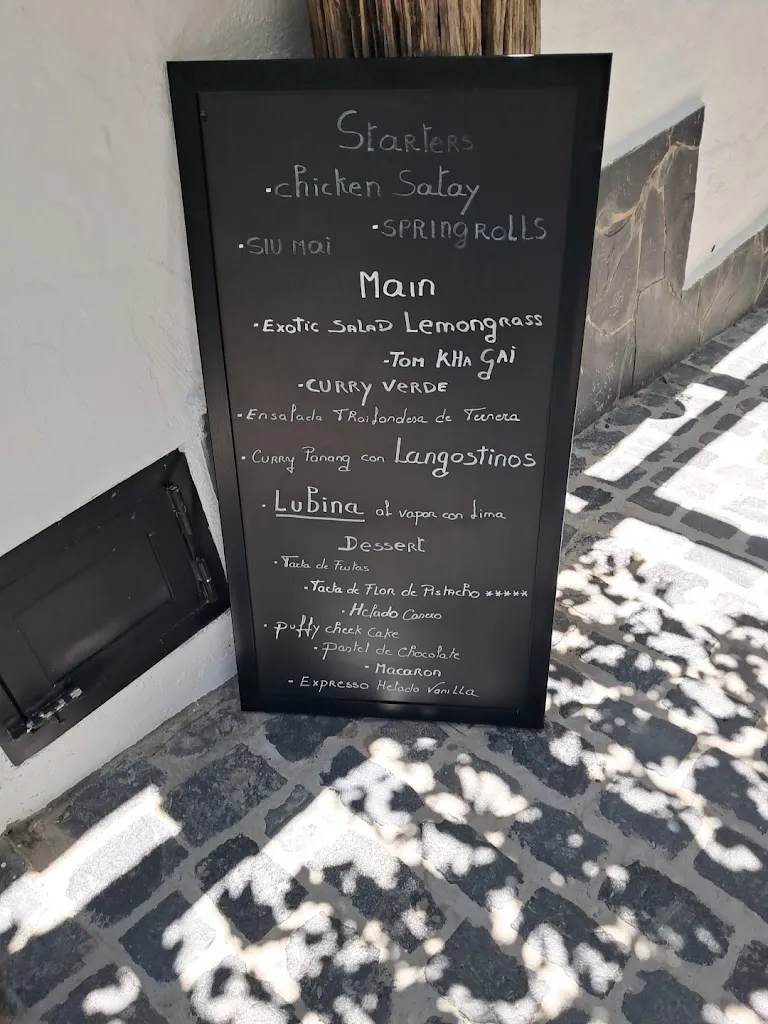 Starters
·chicken Satay
·SPRINGROLLS
·SIU Mai
Main
·Exotic SALAD Lemongrass
-TOM KHA GAI
-CURRY VERDE
·Ensalada Thailandesa de Ternera
·Curry Panang con Langostinos
·Lubina al vapor con Lima
Dessert
·Tarta de Frutas
·Tarta de Flor de Pistacho *****
·Helado Casero
·Puffy cheek cake
·Pastel de chocolate
-Macaron
-Expresso Helado Vanilla